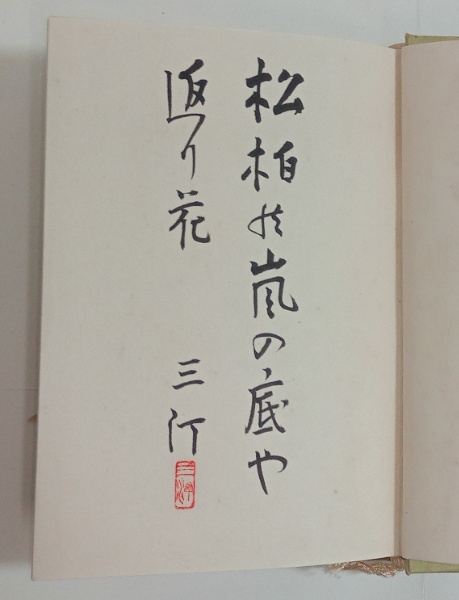 松柏の嵐の底や
返り花
三汀
三汀